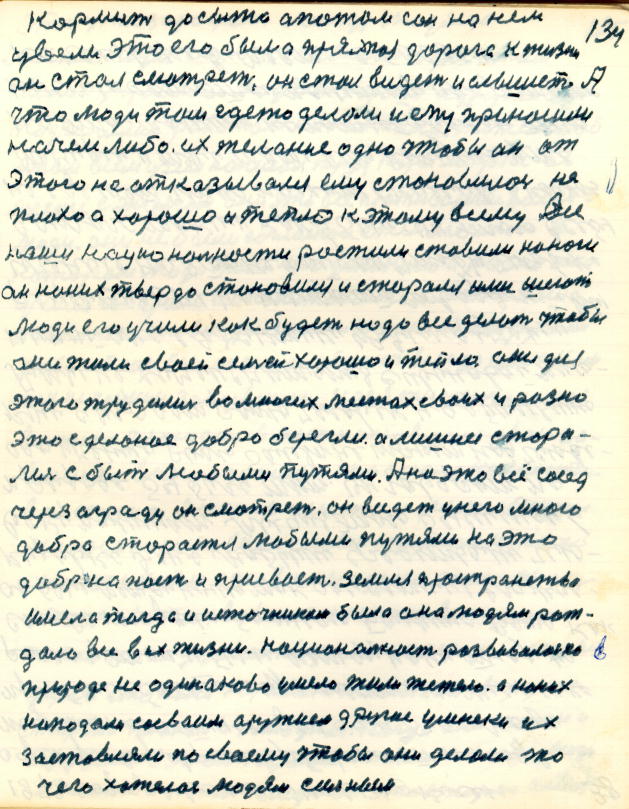 Кормит досыто апотом сон на нем
134
увели Это его была прямая дорога к жизни
он стал смотрет, он стал видет и слышеть. А
что люди там гдето делали и ему приносили
на чем либо. их желание одно чтобы он от
Этого не отказывался ему становилос не
плохо а хорошо и тепло к этому всему Все
наши националности ростили ставили на ноги
он на них твердо становился и старался ими шегать
люди его учили как будет надо все делат чтобы
они жили своей семьей хорошо и тепло они для
этого трудилис во многих местах своих и разно
Это сделоное добро берегли. а лишнее стора-
лис сбыт любыми путями. А на это всё сосед
через ограду он смотрет, он видет у него много
добра старается любыми путями на это
добро напасть и присвоет. Земля пространство
имела тогда и источником была она людям рож-
дала все в их жизни. Националност розвивалас по в
природе не одинаково умело жили тепело. а на них
нападали соевоим оружием другие умнеки их
Заставляли по своему чтобы они делали то
чего хотелос людям сильным